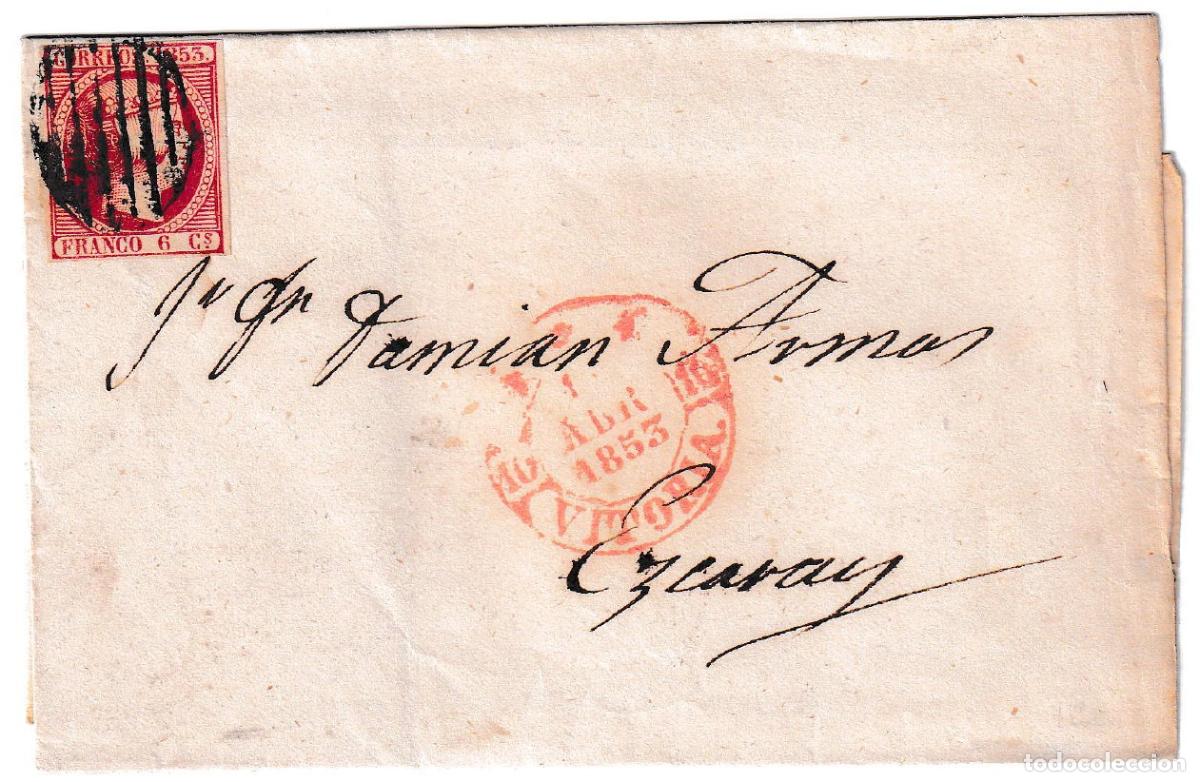 CORREOS 1853.
FRANCO 6 Cs
Sr Dn Damian Armas
1
ABR
1853
16 VITORIA 16
Ezcaray
todocoleccion